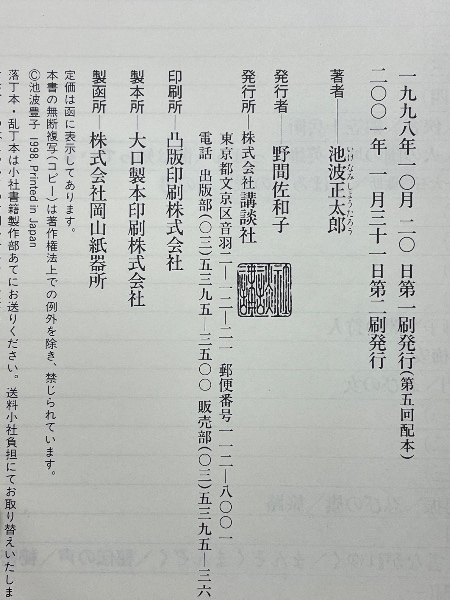 一九九八年一〇月二〇日第一刷発行(第五回配本)
二〇〇一年一月三十一日第二刷発行
著者――池波正太郎
いけなみしょうたろう
発行者――野間佐和子
発行所――株式会社講談社
東京都文京区音羽二―一二―二一 郵便番号一一二―八〇〇一
電話 出版部(〇三)五三九五―三五〇〇 販売部(〇三)五三九五―三六
印刷所――凸版印刷株式会社
製本所――大口製本印刷株式会社
製函所――株式会社岡山紙器所
定価は函に表示してあります。
本書の無断複写(コピー)は著作権法上での例外を除き、禁じられています。
©池波豊子 1998, Printed in Japan
落丁本・乱丁本は小社書籍製作部あてにお送りください。送料小社負担にてお取り替えいたしま